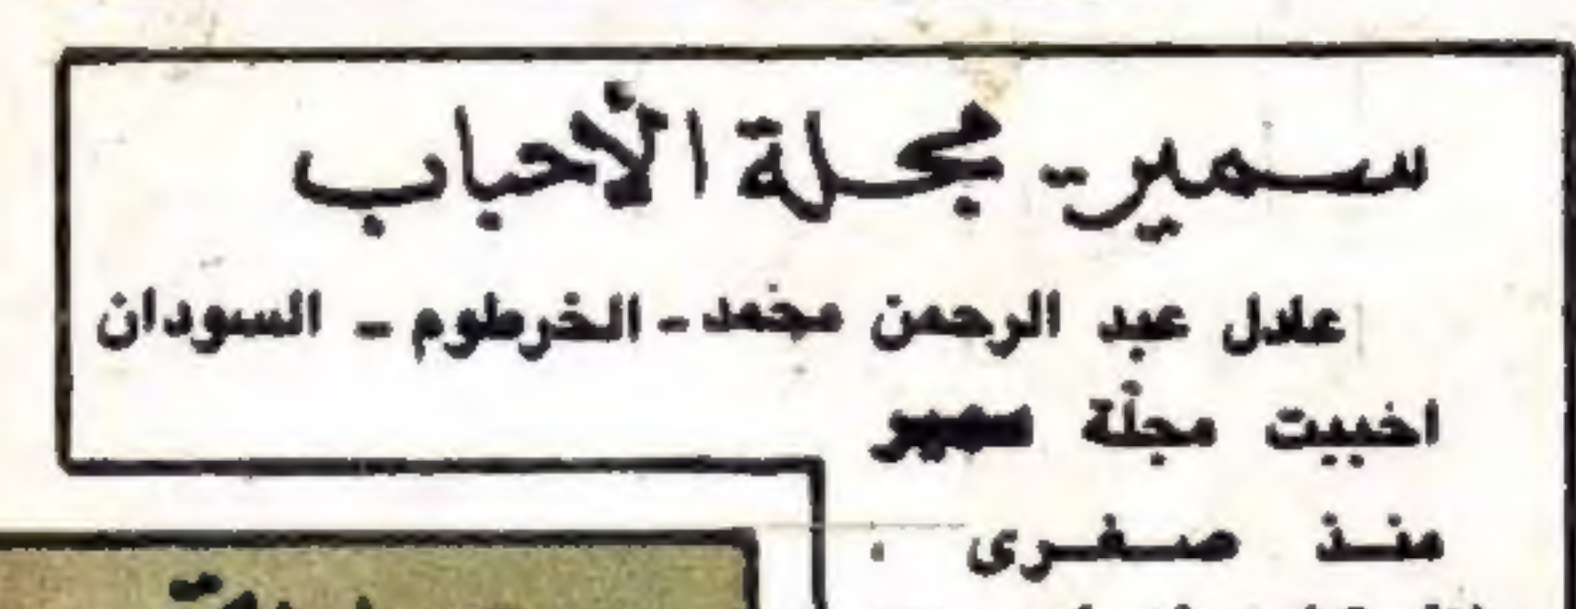 سمير - مجلة الأحباب
عادل عبد الرحمن محمد - الخرطوم - السودان
احببت مجلة سمير
منذ صغرى .